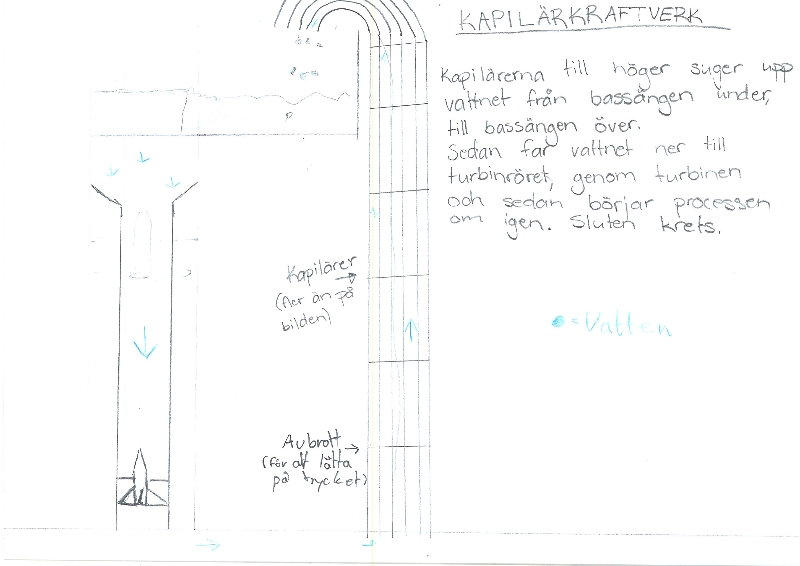 KAPILÄRKRAFTVERK
Kapilärerna till höger suger upp
vattnet från bassängen under,
till bassängen över.
Sedan far vattnet ner till
turbinröret, genom turbinen
och sedan börjar processen
om igen. Sluten krets.
Kapilärer
(fler än på
bilden)
= Vatten
Avbrott
(för att lätta
på trycket)